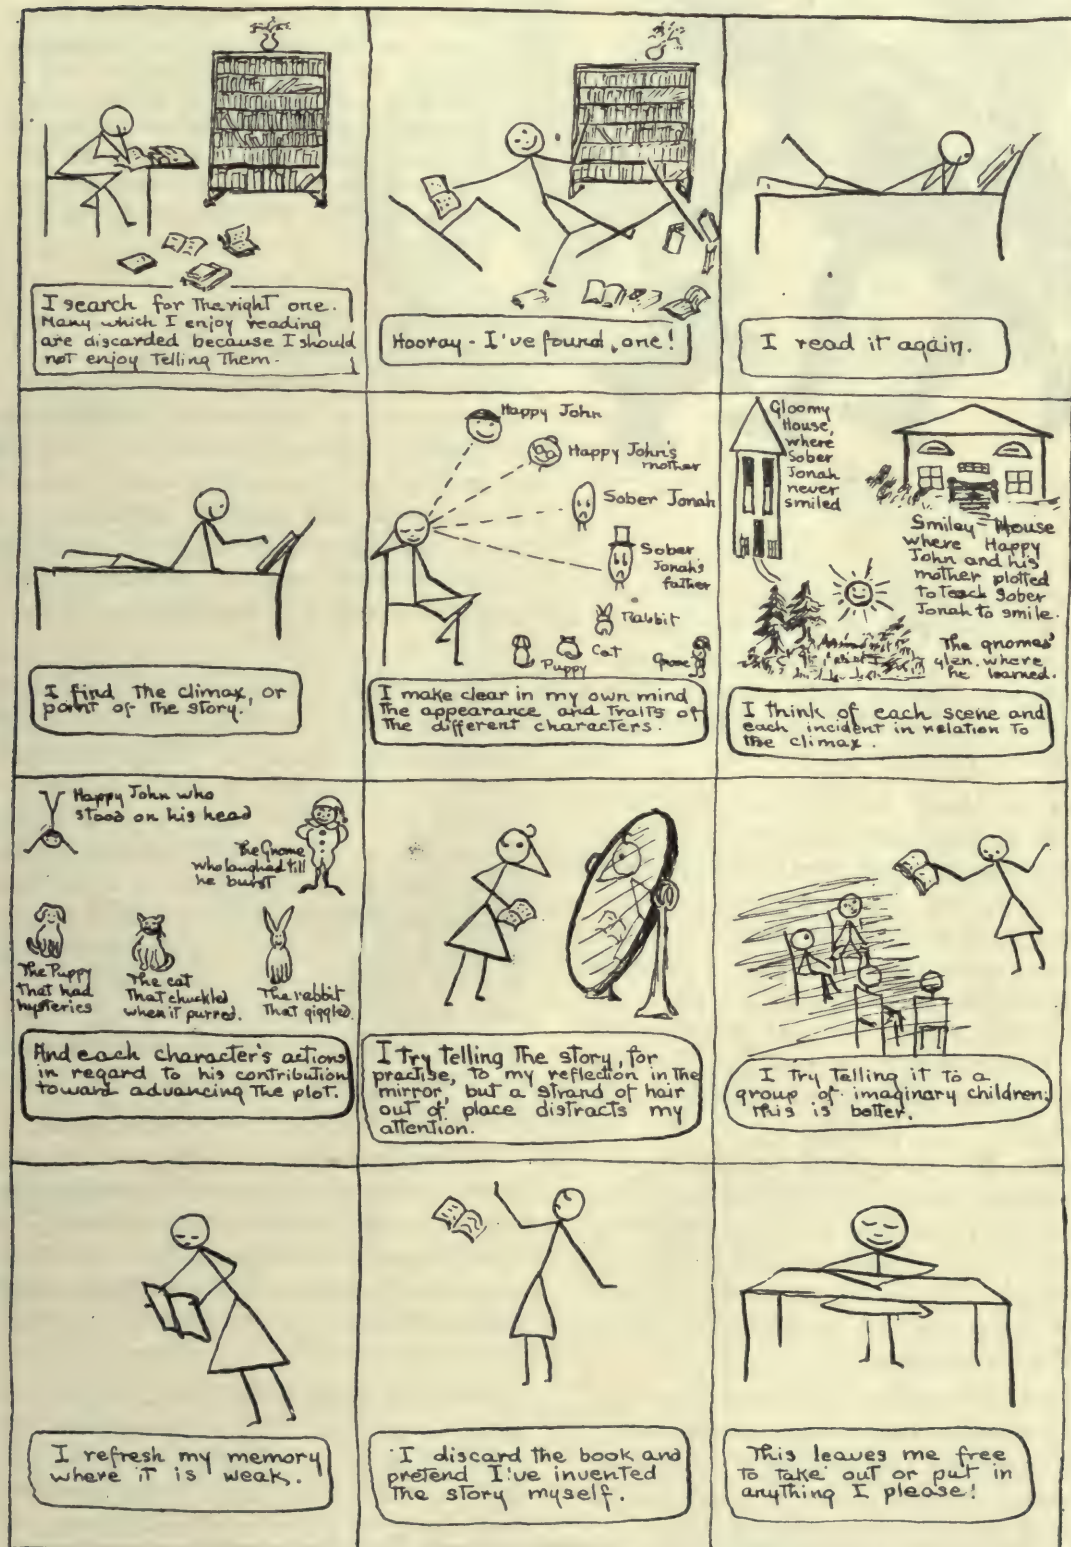 I search for the right one.
Many which I enjoy reading
are discarded because I should
not enjoy telling them.
Hooray - I've found one!
I read it again.
I find the climax, or
point of the story.
Happy John
Happy John's
mother
Sober Jonah
Sober
Jonah's
father
Rabbit
Cat
Puppy
Gnome
I make clear in my own mind
the appearance and traits of
the different characters.
Gloomy
House,
where
Sober
Jonah
never
smiled
Smiley House
where Happy
John and his
mother plotted
to teach Sober
Jonah to smile.
The gnomes'
glen where
he learned.
I think of each scene and
each incident in relation to
the climax.
Happy John who
stood on his head
The Gnome
who laughed till
he burst
The Puppy
that had
hysterics
The cat
that chuckled
when it purred.
The rabbit
that giggled.
And each character's actions
in regard to his contribution
toward advancing the plot.
I try telling the story, for
practise, to my reflection in the
mirror, but a strand of hair
out of place distracts my
attention.
I try telling it to a
group of imaginary children;
this is better.
I refresh my memory
where it is weak.
I discard the book and
pretend I've invented
the story myself.
This leaves me free
to take out or put in
anything I please!